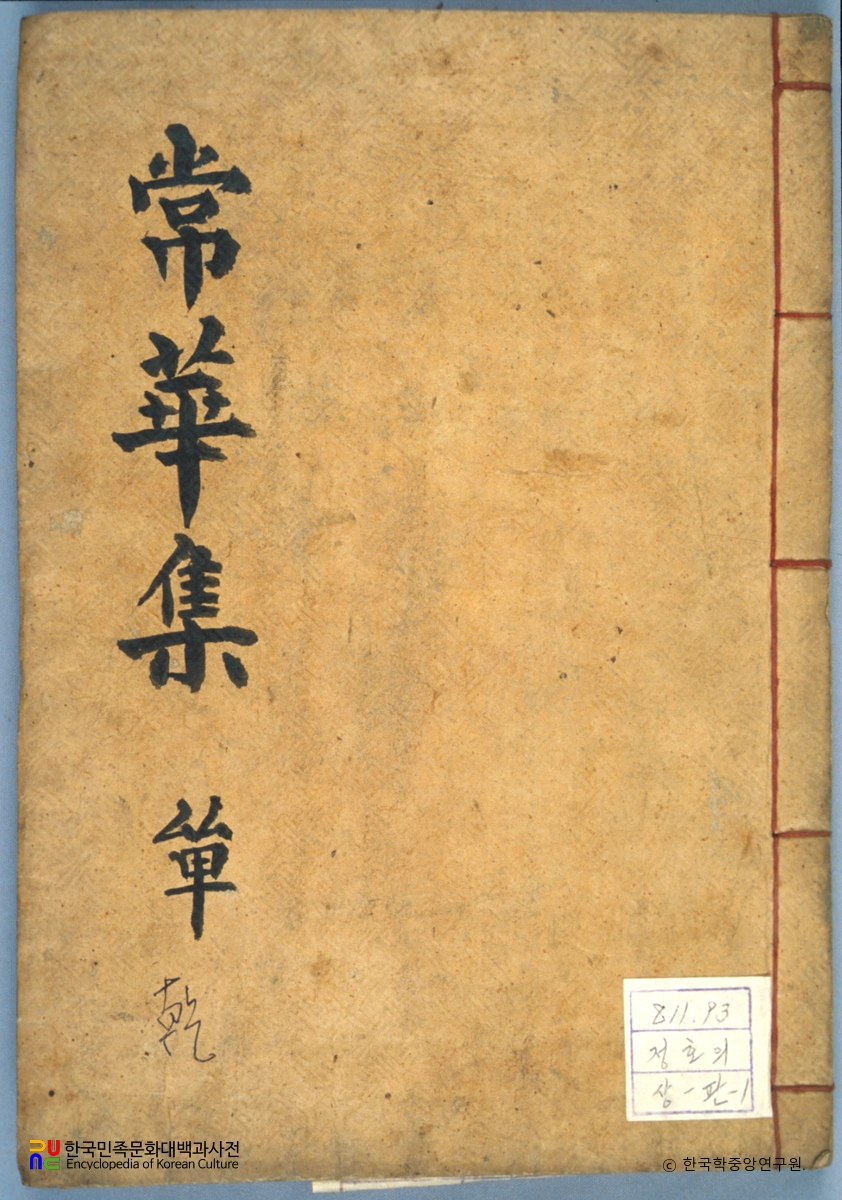 常華集
單
乾
811.93
정호의
상-판-1
한국민족문화대백과사전
Encyclopedia of Korean Culture
© 한국학중앙연구원.